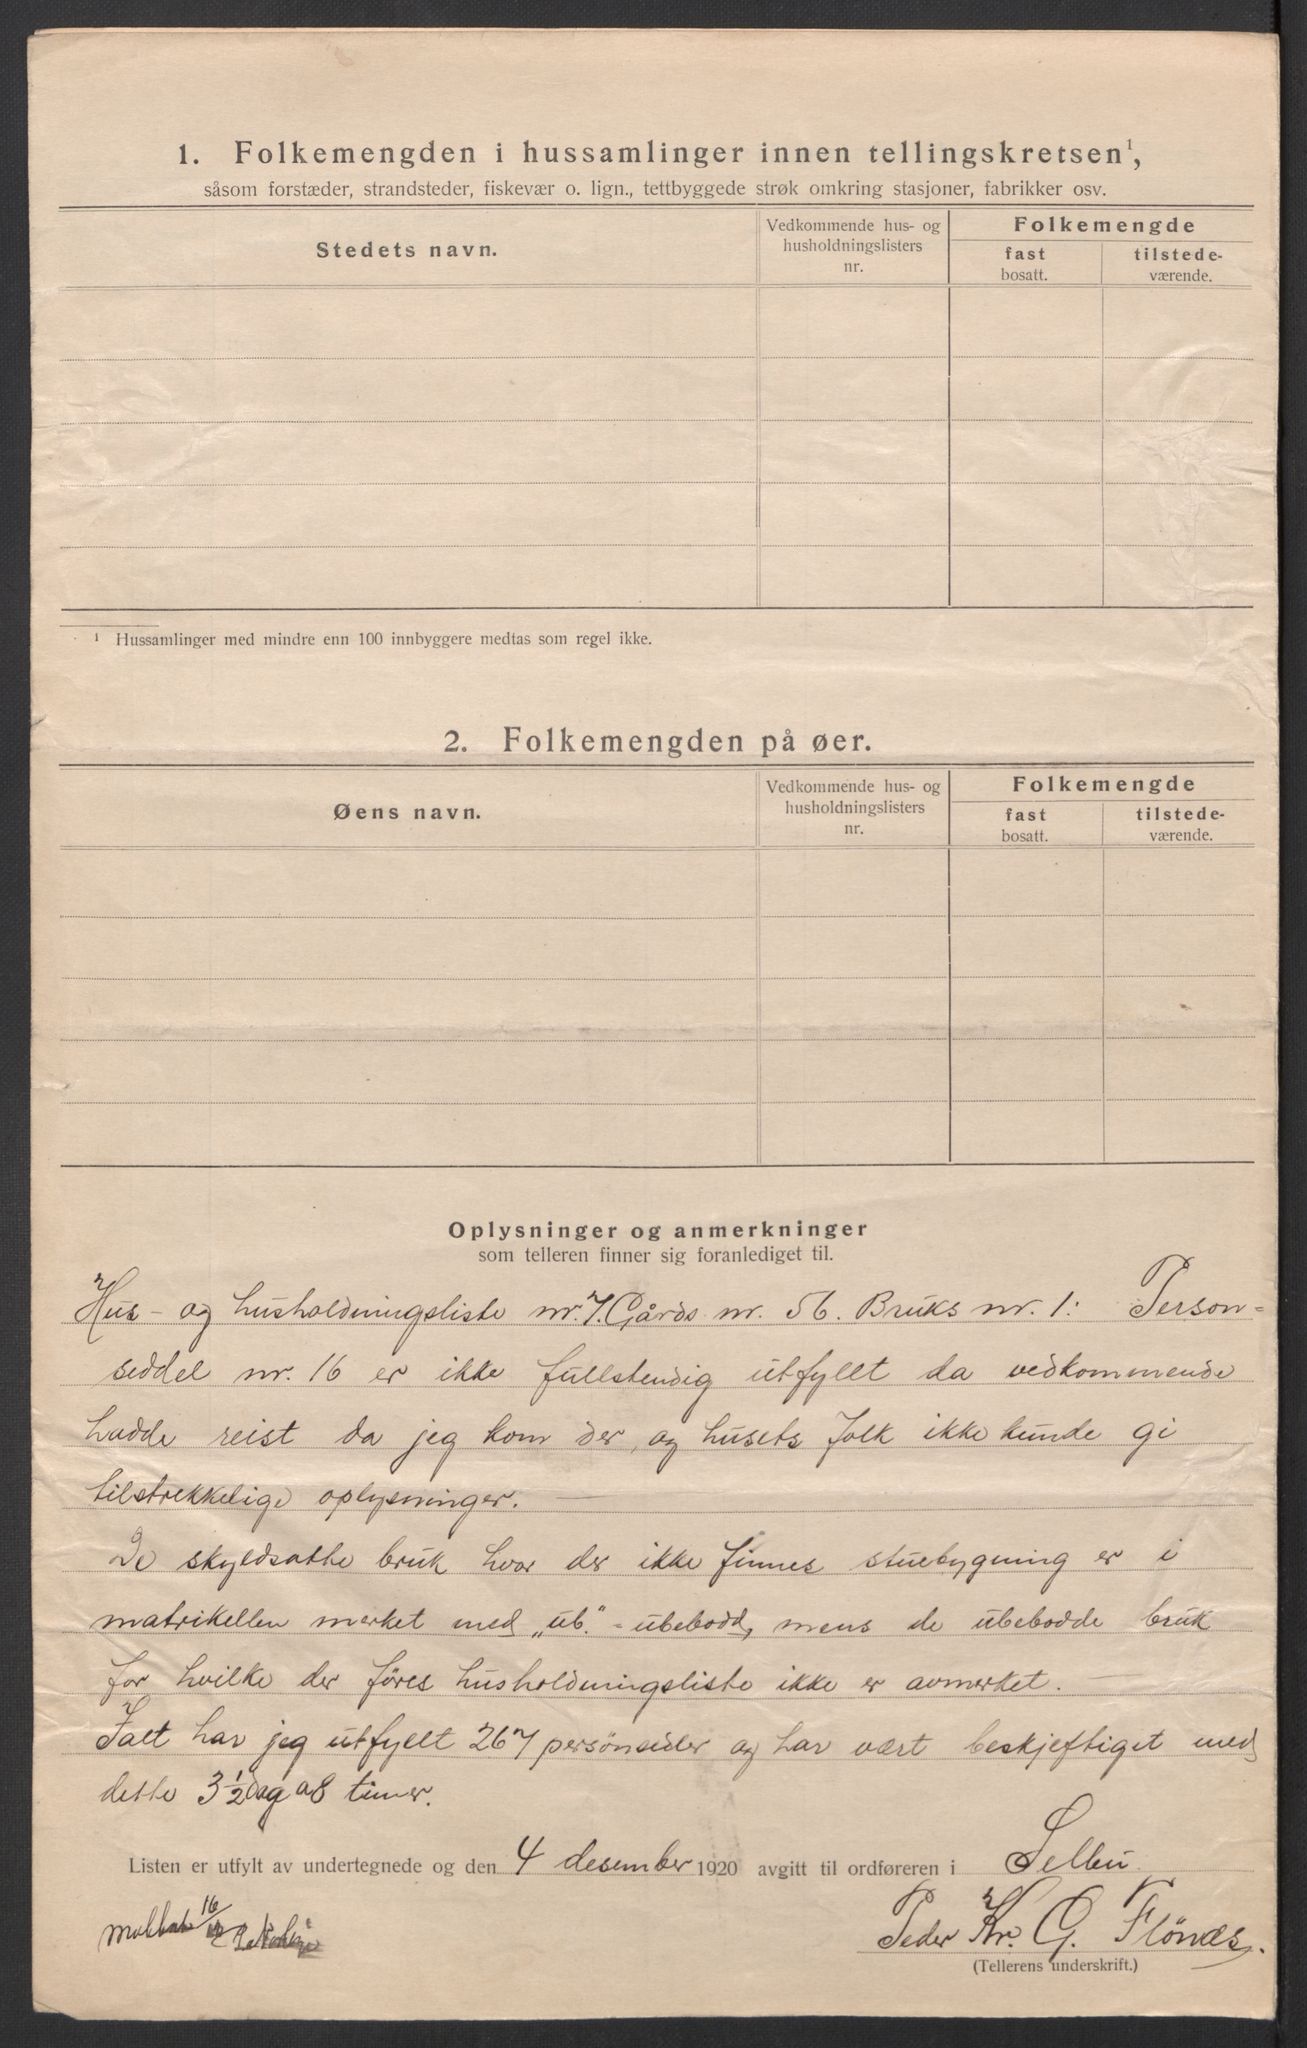 1. Folkemengden i hussamlinger innen tellingskretsen¹,
såsom forstæder, strandsteder, fiskevær o. lign., tettbyggede strøk omkring stasjoner, fabrikker osv.
Stedets navn.
Vedkommende hus- og
husholdningslisters
nr.
Folkemengde
fast
bosatt.
tilstede-
værende.
¹ Hussamlinger med mindre enn 100 innbyggere medtas som regel ikke.
2. Folkemengden på øer.
Øens navn.
Vedkommende hus- og
husholdningslisters
nr.
Folkemengde
fast
bosatt.
tilstede-
værende.
Oplysninger og anmerkninger
som telleren finner sig foranlediget til.
Hus- og husholdningsliste nr. 7. Gårds nr. 56. Bruks nr. 1: Person-
seddel nr. 16 er ikke fullstendig utfyllt da vedkommende
hadde reist da jeg kom der, og husets folk ikke kunde gi
tilstrekkelige oplysninger.
De skyldsatte bruk hvor der ikke finnes stuebygning er i
matrikellen merket med „ub." - ubebodd, mens de ubebodde bruk
for hvilke der föres husholdningsliste ikke er avmerket.
Ialt har jeg utfyllt 267 personsedler og har vært beskjeftiget med
dette 3 1/2 dag a 8 timer.
Listen er utfylt av undertegnede og den 4 desember 1920 avgitt til ordføreren i Selbu
16/12
Peder Kr. G. Flönæs.
(Tellerens underskrift.)